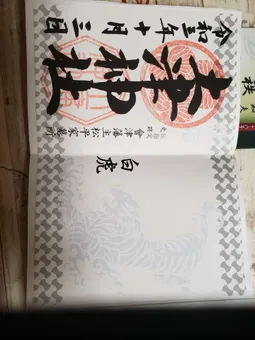 令和三年十月三日
土津神社
會津藩主松平家墓所
白虎